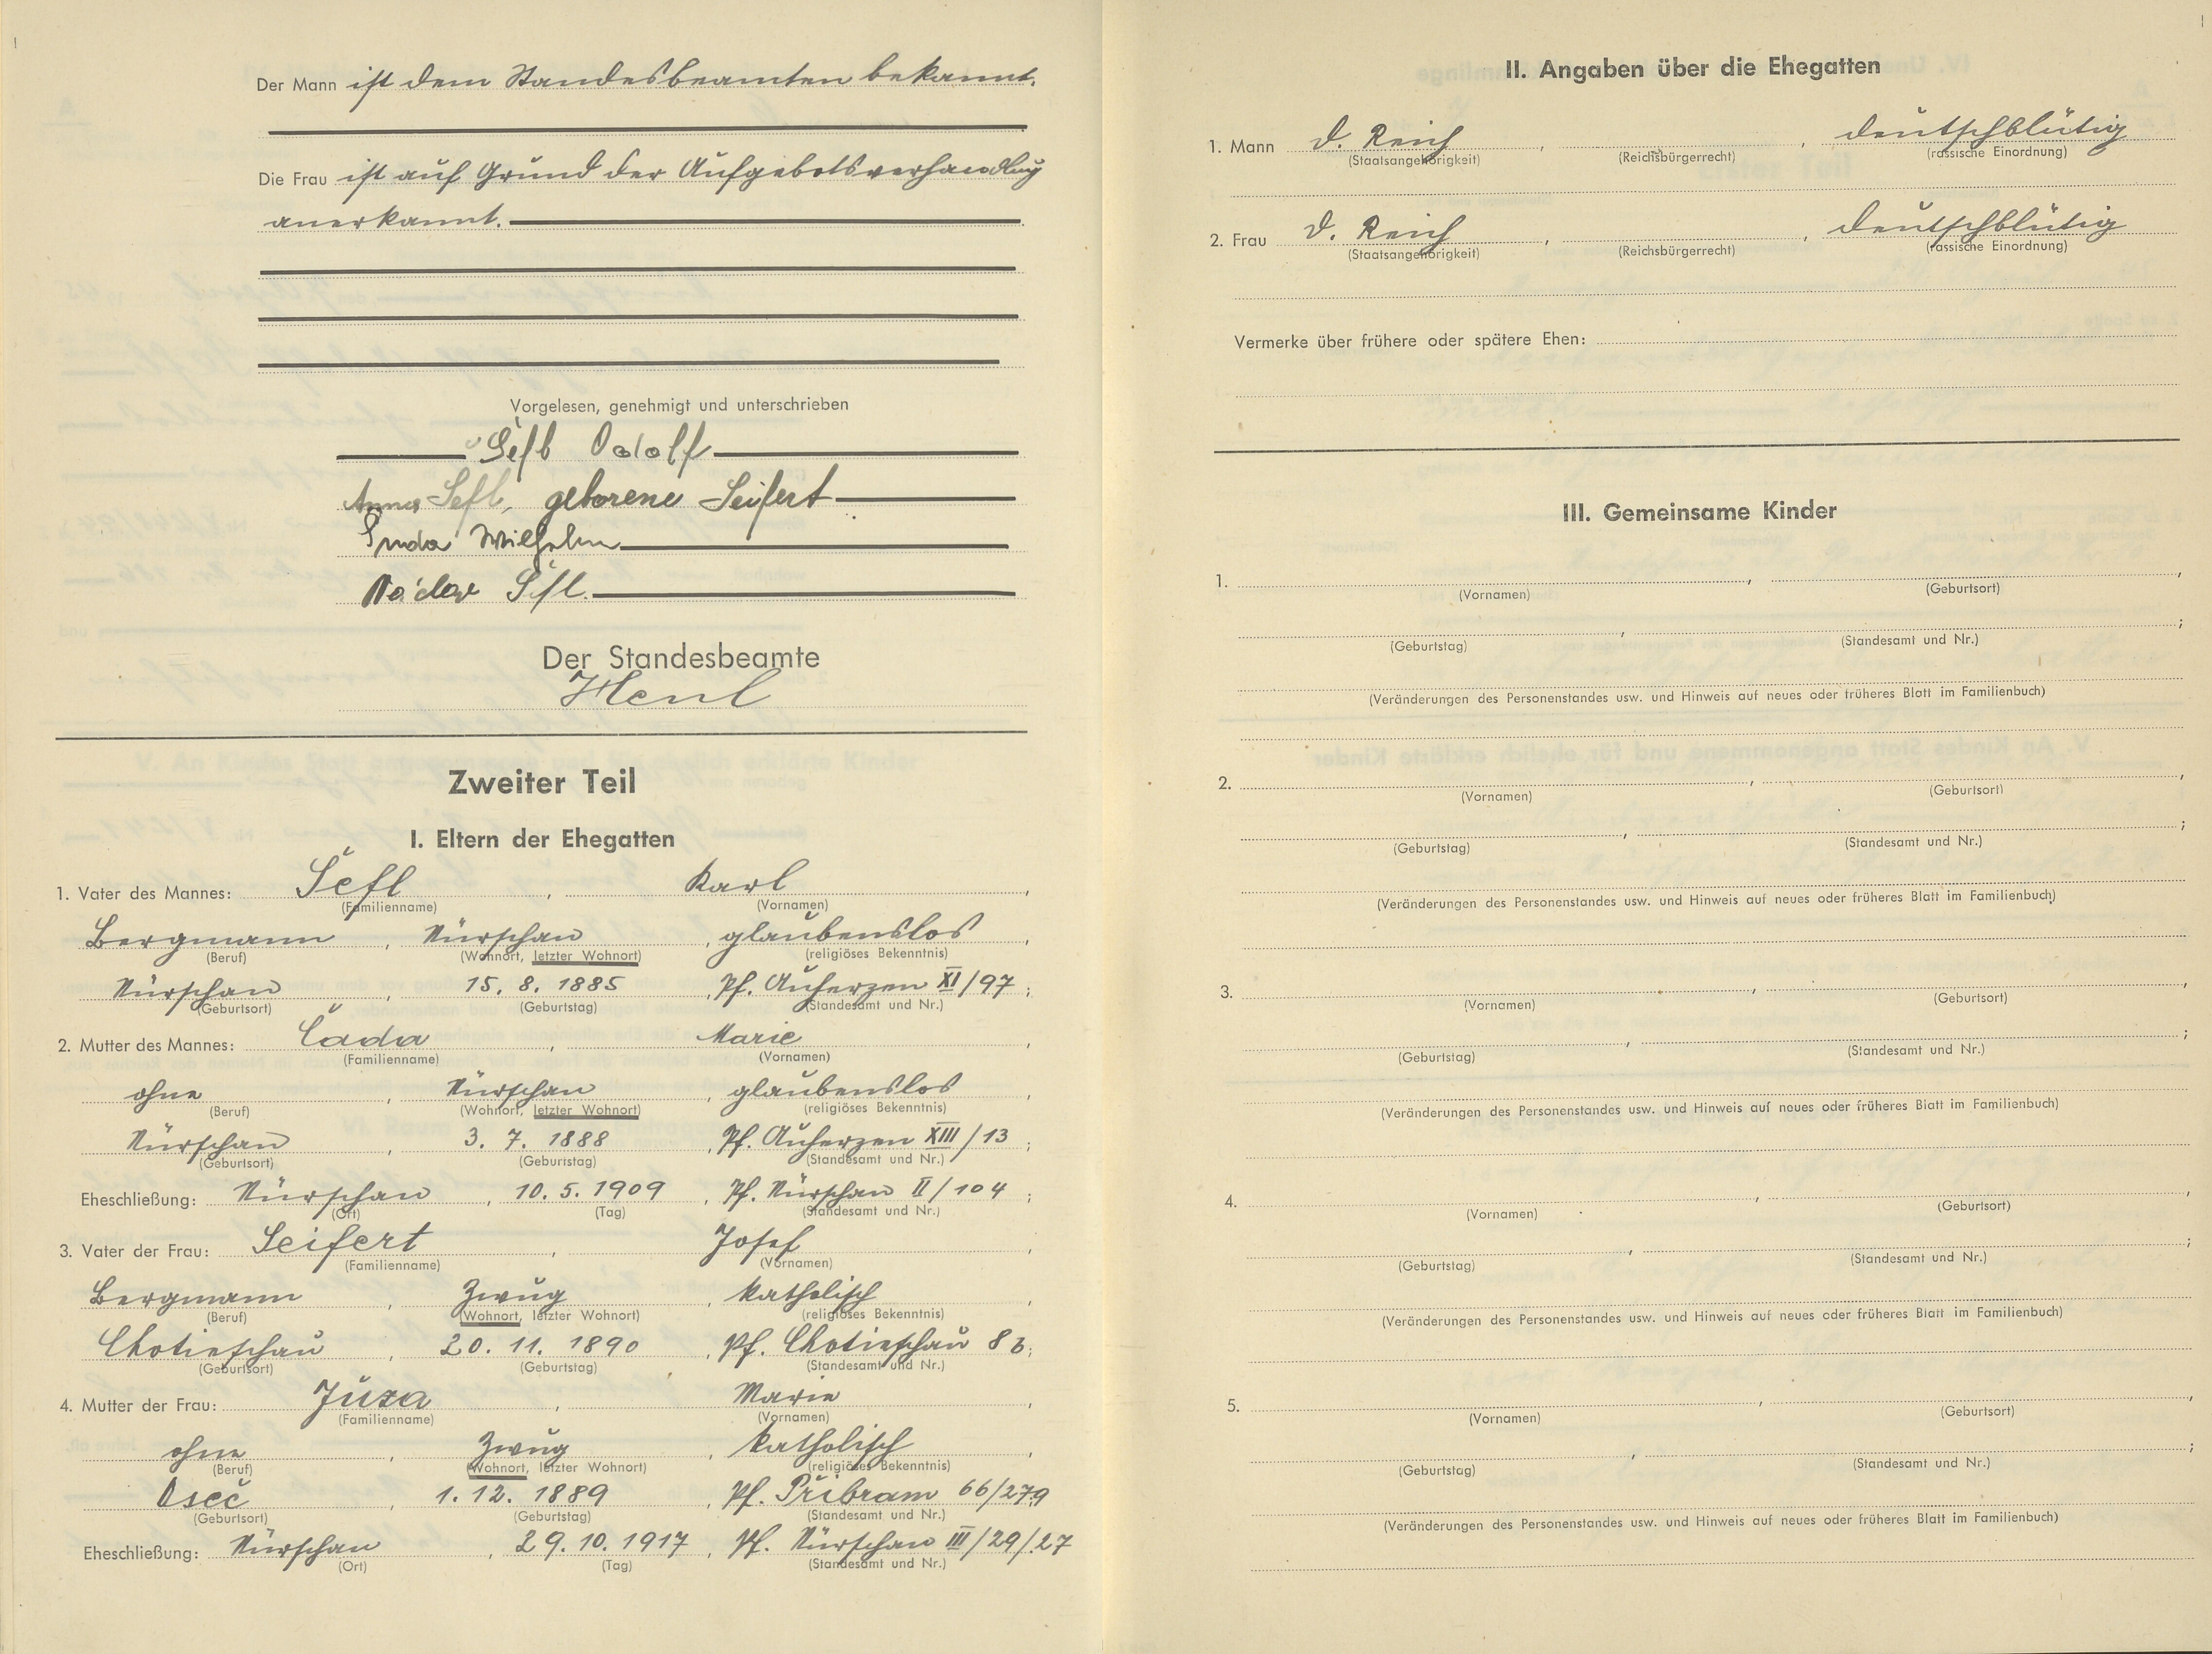 Der Mann ist dem Standesbeamten bekannt.
Die Frau ist auf Grund der Aufgebotsverhandlung
anerkannt.
Vorgelesen, genehmigt und unterschrieben
Šefl
Anna Sefl, geborene Seifert
Wilhelm
Šefl.
Der Standesbeamte
Henl
Zweiter Teil
I. Eltern der Ehegatten
1. Vater des Mannes: Šefl, Karl,
(Familienname) (Vornamen)
Bergmann, Nürschan, glaubenslos,
(Beruf) (Wohnort, letzter Wohnort) (religiöses Bekenntnis)
Nürschan, 15. 8. 1885, Pf. Auherzen XI/97;
(Geburtsort) (Geburtstag) (Standesamt und Nr.)
2. Mutter des Mannes: Čada, Marie,
(Familienname) (Vornamen)
ohne, Nürschan, glaubenslos,
(Beruf) (Wohnort, letzter Wohnort) (religiöses Bekenntnis)
Nürschan, 3. 7. 1888, Pf. Auherzen XIII/13;
(Geburtsort) (Geburtstag) (Standesamt und Nr.)
Eheschließung: Nürschan, 10. 5. 1909, Pf. Nürschan II/104;
(Ort) (Tag) (Standesamt und Nr.)
3. Vater der Frau: Seifert, Josef,
(Familienname) (Vornamen)
Bergmann, Zwug, katholisch,
(Beruf) (Wohnort, letzter Wohnort) (religiöses Bekenntnis)
Chotieschau, 20. 11. 1890, Pf. Chotieschau;
(Geburtsort) (Geburtstag) (Standesamt und Nr.)
4. Mutter der Frau: Juza, Marie,
(Familienname) (Vornamen)
ohne, Zwug, katholisch,
(Beruf) (Wohnort, letzter Wohnort) (religiöses Bekenntnis)
Oseč, 1. 12. 1889, Pf. Přibram 66/279
(Geburtsort) (Geburtstag) (Standesamt und Nr.)
Eheschließung: Nürschan, 29. 10. 1917, Pf. Nürschan III/29/27
(Ort) (Tag) (Standesamt und Nr.)
II. Angaben über die Ehegatten
1. Mann D. Reich, , deutschblütig
(Staatsangehörigkeit) (Reichsbürgerrecht) (rassische Einordnung)
2. Frau D. Reich, , deutschblütig
(Staatsangehörigkeit) (Reichsbürgerrecht) (rassische Einordnung)
Vermerke über frühere oder spätere Ehen:
III. Gemeinsame Kinder
1. , ,
(Vornamen) (Geburtsort)
, ;
(Geburtstag) (Standesamt und Nr.)
(Veränderungen des Personenstandes usw. und Hinweis auf neues oder früheres Blatt im Familienbuch)
2. , ,
(Vornamen) (Geburtsort)
, ;
(Geburtstag) (Standesamt und Nr.)
(Veränderungen des Personenstandes usw. und Hinweis auf neues oder früheres Blatt im Familienbuch)
3. , ,
(Vornamen) (Geburtsort)
, ;
(Geburtstag) (Standesamt und Nr.)
(Veränderungen des Personenstandes usw. und Hinweis auf neues oder früheres Blatt im Familienbuch)
4. , ,
(Vornamen) (Geburtsort)
, ;
(Geburtstag) (Standesamt und Nr.)
(Veränderungen des Personenstandes usw. und Hinweis auf neues oder früheres Blatt im Familienbuch)
5. , ,
(Vornamen) (Geburtsort)
, ;
(Geburtstag) (Standesamt und Nr.)
(Veränderungen des Personenstandes usw. und Hinweis auf neues oder früheres Blatt im Familienbuch)